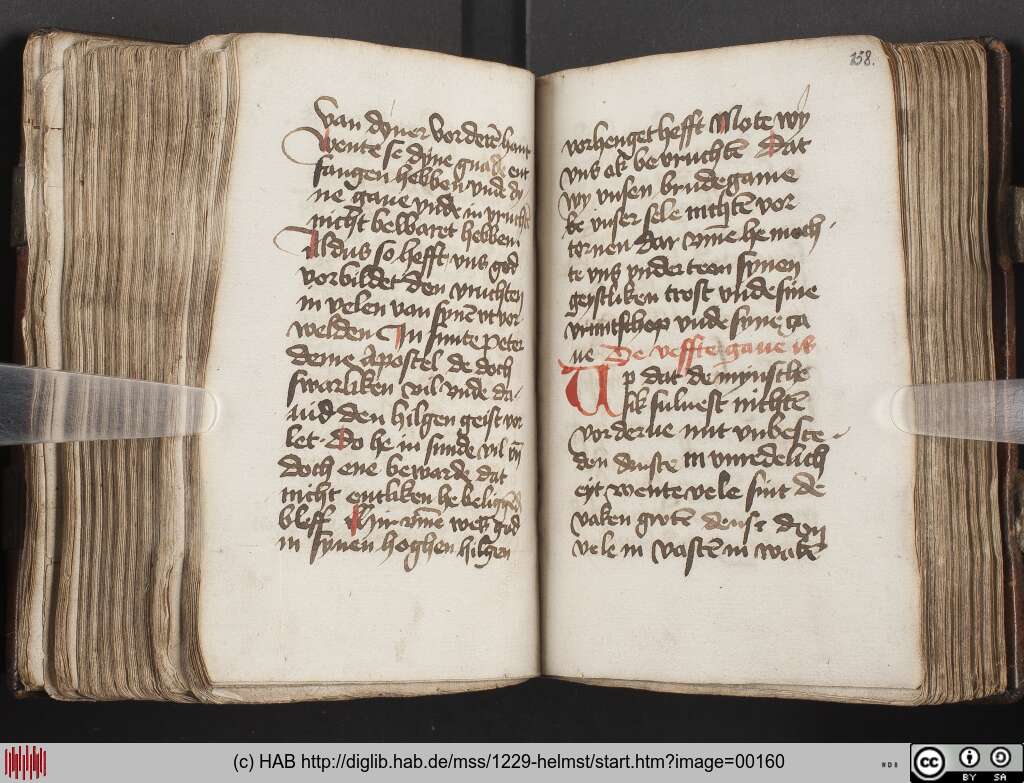 van dyner vorderē hant
Wente se dyne gnade ent
fangen hebben vnde dy
ne gaue vnde in vrucht
nicht bewaret hebben
Aldus so hefft vns god
vorbildet den vruchten
in velen van synē vtvor
welden In sunte Peter
deme Apostel de doch
swarliken vil vnde da-
uid den hilgen geist vor
let. Do he in sunde vil vn̄
doch ene bewarde dat
nicht entliken he beligghen
bleff Hir vm̄e wes god
in synen hoghen hilgen
158.
vorhenget hefft Mote wy
vns ok bevruchtē Dat
wy vnsen brudegame
be vnser sele nichtē vor
tornen dar vm̄e he moch
te vns vnder teen synen
geystliken trost vnde sine
vruntschop vnde syne ga
ue De veffte gaue is
Up dat de mynsche
sik suluest nichtē
vorderue mit vnbesce-
den dinste in vnredelich
eyt wente vele sint de
vaken grotē denst don
vele in vastē in wakē
(c) HAB http://diglib.hab.de/mss/1229-helmst/start.htm?image=00160
WDB
cc
BY SA